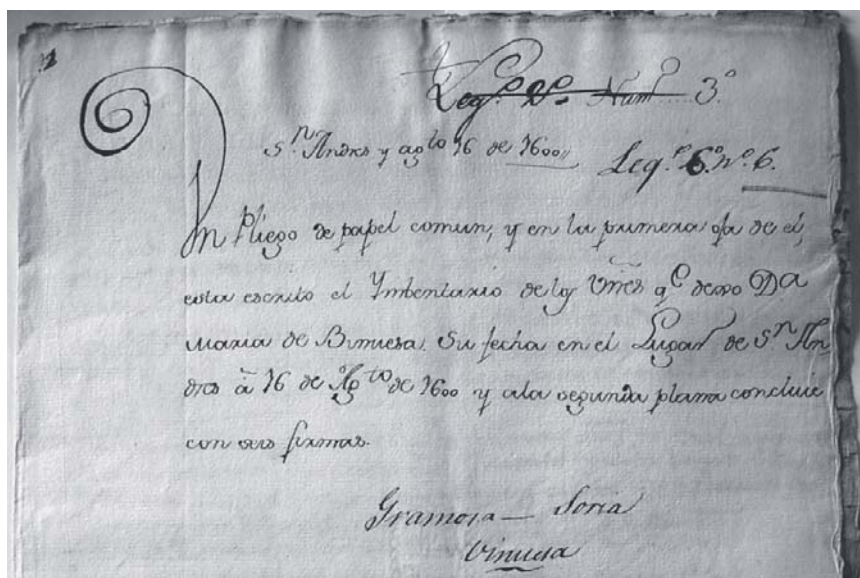 Leg.º Nº Num.º.... 3.º
S.n Andres y ag.to 16 de 1600
Leg.º 6.º Nº. 6.
Un Pliego de papel comun, y en la primera oja de el,
esta escrito el Ymbentario de los Vñes q.e dexo D.a
Maria de Binuesa. Su fecha en el Lugar de S.n An-
dres â 16 de Ag.to de 1600 y ala segunda plana concluie
con seis firmas.
Gramosa — Soria
Vinuesa